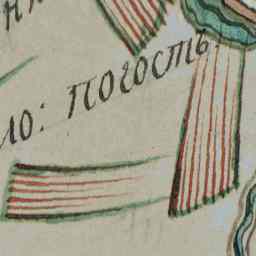 ло: погость